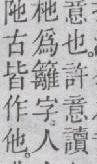 意也。許意讀
柂爲籬字。人
陁古皆作他。